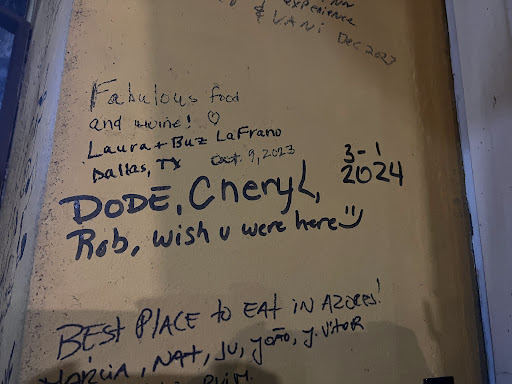 experience
& VANI Dec 2023
Fabulous food
and wine! ♡
Laura + Buz LaFrano
Dallas, TX Oct 9, 2023
DODE, Cheryl, 3-1 2024
Rob, wish u were here
BEST PLACE to EAt iN AZORES!
MÁRCIA, NAt, JU, JOÃO, J. VitOR